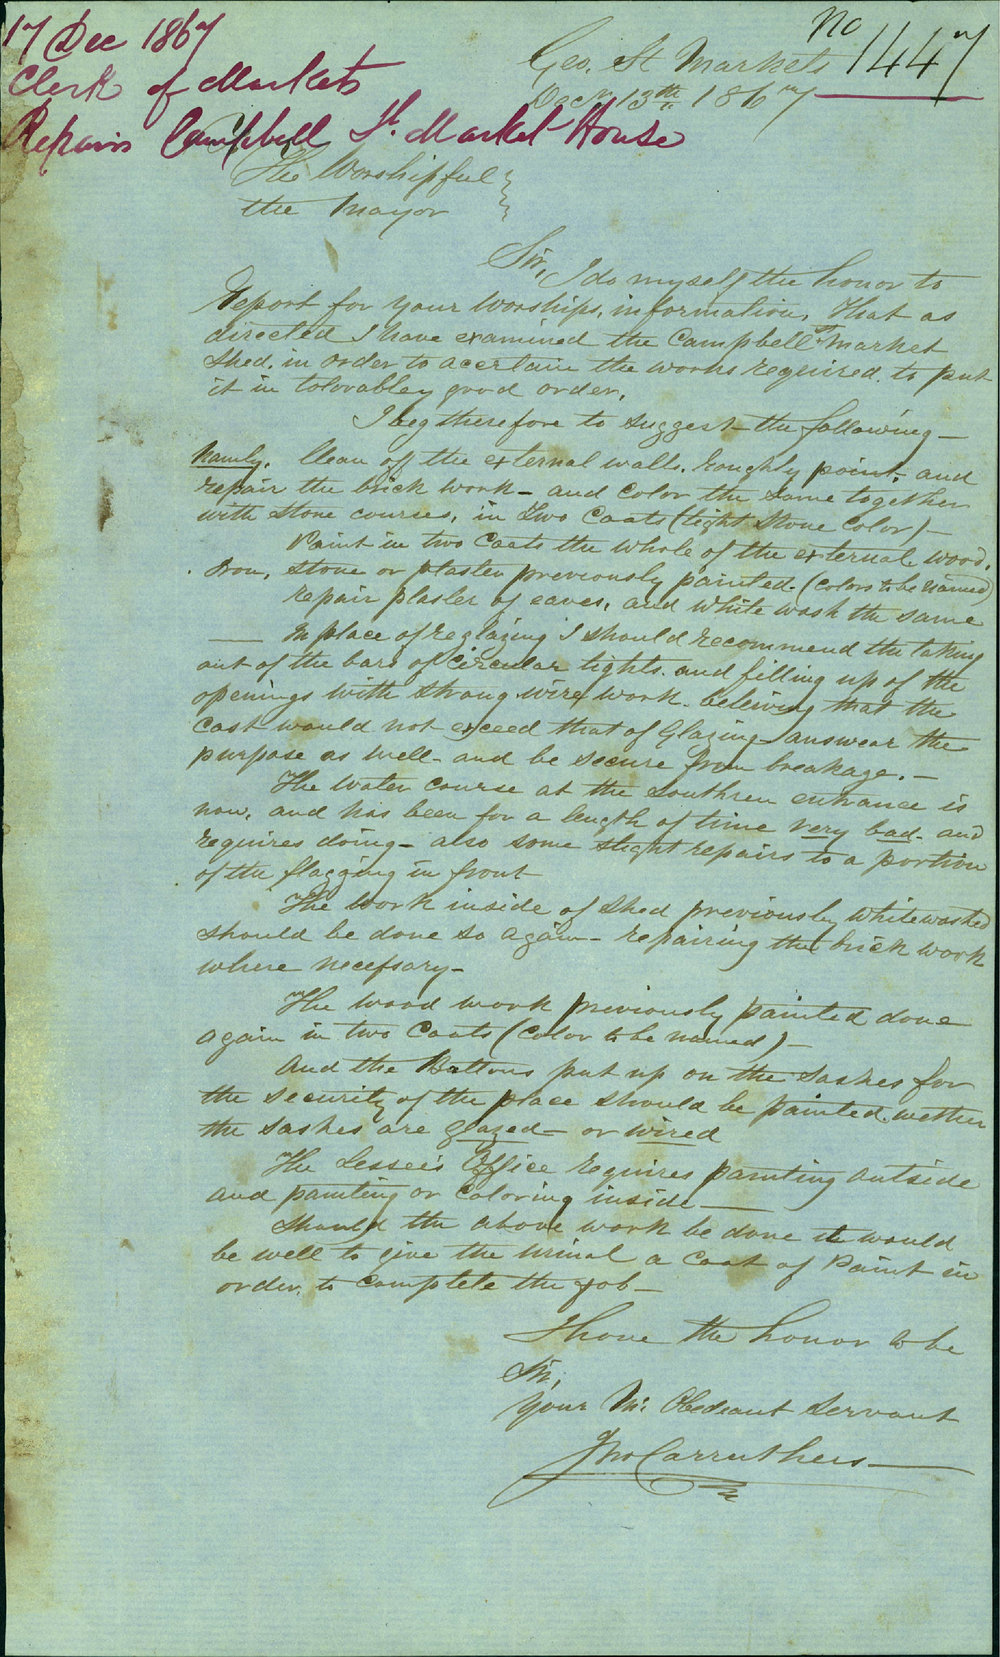 17 Dec 1867
Clerk of Markets
Repairs Campbell St. Market House
No 1447
Geo. St Markets
Decr 13th 1867
The Worshipful
the Mayor
Sir,
I do myself the honor to
Report for your Worships, information, that as
directed I have examined the Campbell St Market
Shed, in order to acertain the works required, to put
it in tolorabley good order.
I beg therefore to suggest the following—
Namly. Clean off the external walls. roughly point, and
repair the brick work – and color the same together
with stone courses, in two Coats (light Stone Color) –
Paint in two Coats the whole of the external wood.
Iron, stone or plaster previously painted. (colors to be named)
repair plaster of eaves, and white wash the same
— In place of reglazing I should recommend the taking
out of the bars of circular lights. and filling up of the
openings with strong wire work. beleiving that the
cost would not exceed that of Glazing answear the
purpose as well – and be secure from breakage. –
The water course at the southren entrance is
now, and has been for a length of time very bad. and
requires doing – also some slight repairs to a portion
of the flagging in front
The work inside of shed previously Whitewashed
should be done so again – repairing the brick work
where necessary –
The wood work previously painted done
again in two Coats (color to be named) –
And the Battons put up on the sashes for
the security of the place should be painted. wether
the sashes are glazed – or wired
The Lessee's Office requires painting outside
and painting or coloring inside —
Should the above work be done it would
be well to give the urinal a Coat of Paint in
order, to complete the job –
I have the honor to be
Sir,
Your Mt Obedeant Servant
Jno Carruthers —